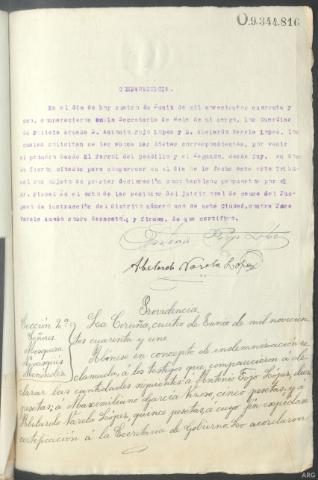 O.9.344.816
COMPARECENCIA.
En el día de hoy cuatro de Junio de mil novecientos cuarenta y
uno, comparecieron en la Secretaría de Sala de mi cargo, los Guardias
de Policía Armada D. Antonio Fojo López y D. Abelardo Varela López, los
cuales solicitan se les abone las dietas correspondientes, por venir
el primero desde El Ferrol del Caudillo y el segundo, desde
al objeto de prestar declaración como testigos propuestos por el
Sr. Fiscal en el acto de las sesiones del juicio oral de causa del Juz-
gado de instrucción del Distrito número uno de esta Ciudad, contra
Varela y firman, de que certifico.
Antonio Fojo López
Abelardo Varela López
Providencia
Sección 2ª
Señores
La Coruña, cuatro de Junio de mil novecien
tos cuarenta y uno
Abónese en concepto de indemnización re
clamada á los testigos que comparecieron á de
clarar las cantidades siguientes á Antonio Fojo López,
pesetas; á Maximiliano García cinco pesetas, y á
Abelardo Varela López, quince pesetas, á cuyo fin expídase
certificación á la Secretaría de Gobierno. Lo acordaron
ARG